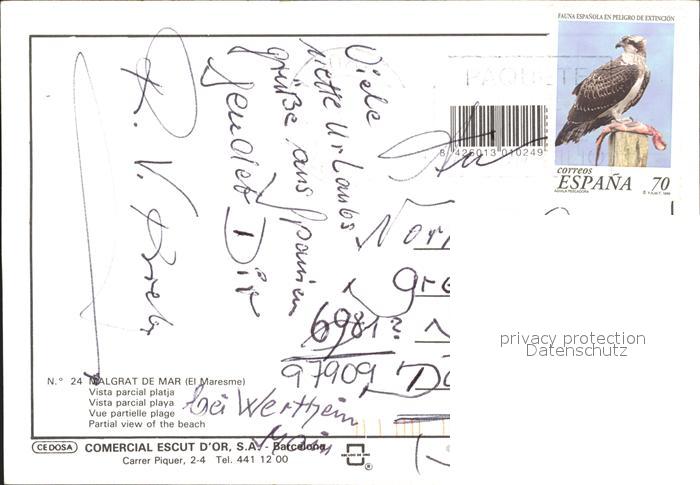 FAUNA ESPAÑOLA EN PELIGRO DE EXTINCIÓN
PAQUETE
correos
ESPAÑA 70
AGUILA PESCADORA
8 426013 010249
Viele
nette Urlaubs
grüße aus Spanien
sendet Dir
An
Nor
97909
bei Wertheim
Main
privacy protection
Datenschutz
N.° 24 MALGRAT DE MAR (El Maresme)
Vista parcial platja
Vista parcial playa
Vue partielle plage
Partial view of the beach
CEDOSA COMERCIAL ESCUT D'OR, S.A. - Barcelona
Carrer Piquer, 2-4 Tel. 441 12 00